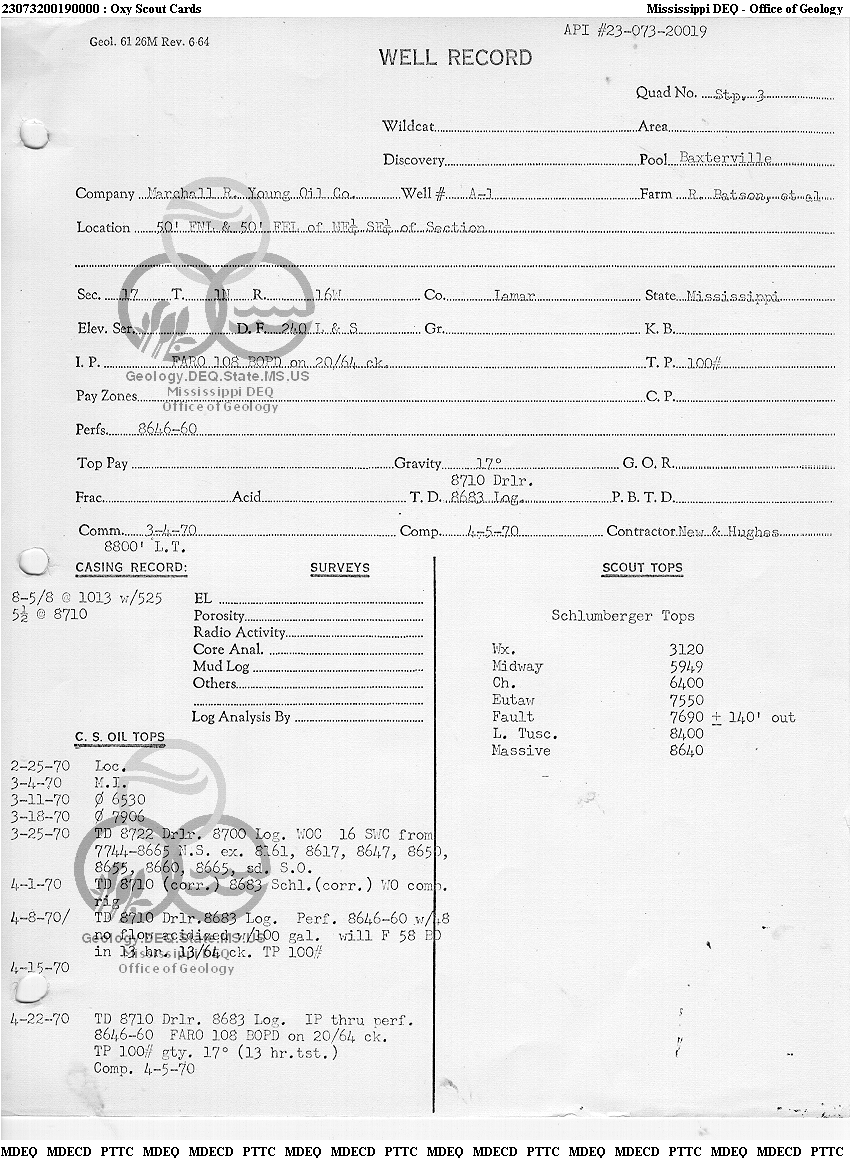 23073200190000 : Oxy Scout Cards Mississippi DEQ - Office of Geology
API #23-073-20019
Geol. 61 26M Rev. 6-64
WELL RECORD
Quad No. Stp. 3
Wildcat Area
Discovery Pool Baxterville
Company Marshall R. Young Oil Co. Well # A-1 Farm R. Batson, et al
Location 50' FNL & 50' FEL of NE¼ SE¼ of Section
Sec. 17 T. 1N R. 16W Co. Lamar State Mississippi
Elev. Ser. D. F. 240 L & S Gr. K. B.
I. P. FARO 108 BOPD on 20/64 ck. T. P. 100#
Geology.DEQ.State.MS.US
Mississippi DEQ
Pay Zones C. P.
Office of Geology
Perfs. 8646-60
Top Pay Gravity 17° G. O. R.
8710 Drlr.
Frac. Acid T. D. 8683 Log. P. B. T. D.
Comm. 3-4-70 Comp. 4-5-70 Contractor New & Hughes
8800' L.T.
CASING RECORD: SURVEYS SCOUT TOPS
8-5/8 @ 1013 w/525 EL
5½ @ 8710 Porosity Schlumberger Tops
Radio Activity
Core Anal. Wx. 3120
Mud Log Midway 5949
Others Ch. 6400
Eutaw 7550
Log Analysis By Fault 7690 ± 140' out
C. S. OIL TOPS L. Tusc. 8400
Massive 8640
2-25-70 Loc.
3-4-70 M.I.
3-11-70 Ø 6530
3-18-70 Ø 7906
3-25-70 TD 8722 Drlr. 8700 Log. WOC 16 SWC from
7744-8665 N.S. ex. 8161, 8617, 8647, 8650,
8655, 8660, 8665, sd. S.O.
4-1-70 TD 8710 (corr.) 8683 Schl.(corr.) WO comp.
rig
4-8-70/ TD 8710 Drlr.8683 Log. Perf. 8646-60 w/48
no flow acidized w/100 gal. will F 58 BO
Geology.DEQ.State.MS.US
in 13 hr. 13/64 ck. TP 100#
Mississippi DEQ
4-15-70
Office of Geology
4-22-70 TD 8710 Drlr. 8683 Log. IP thru perf.
8646-60 FARO 108 BOPD on 20/64 ck.
TP 100# gty. 17° (13 hr.tst.)
Comp. 4-5-70
MDEQ MDECD PTTC MDEQ MDECD PTTC MDEQ MDECD PTTC MDEQ MDECD PTTC MDEQ MDECD PTTC MDEQ MDECD PTTC